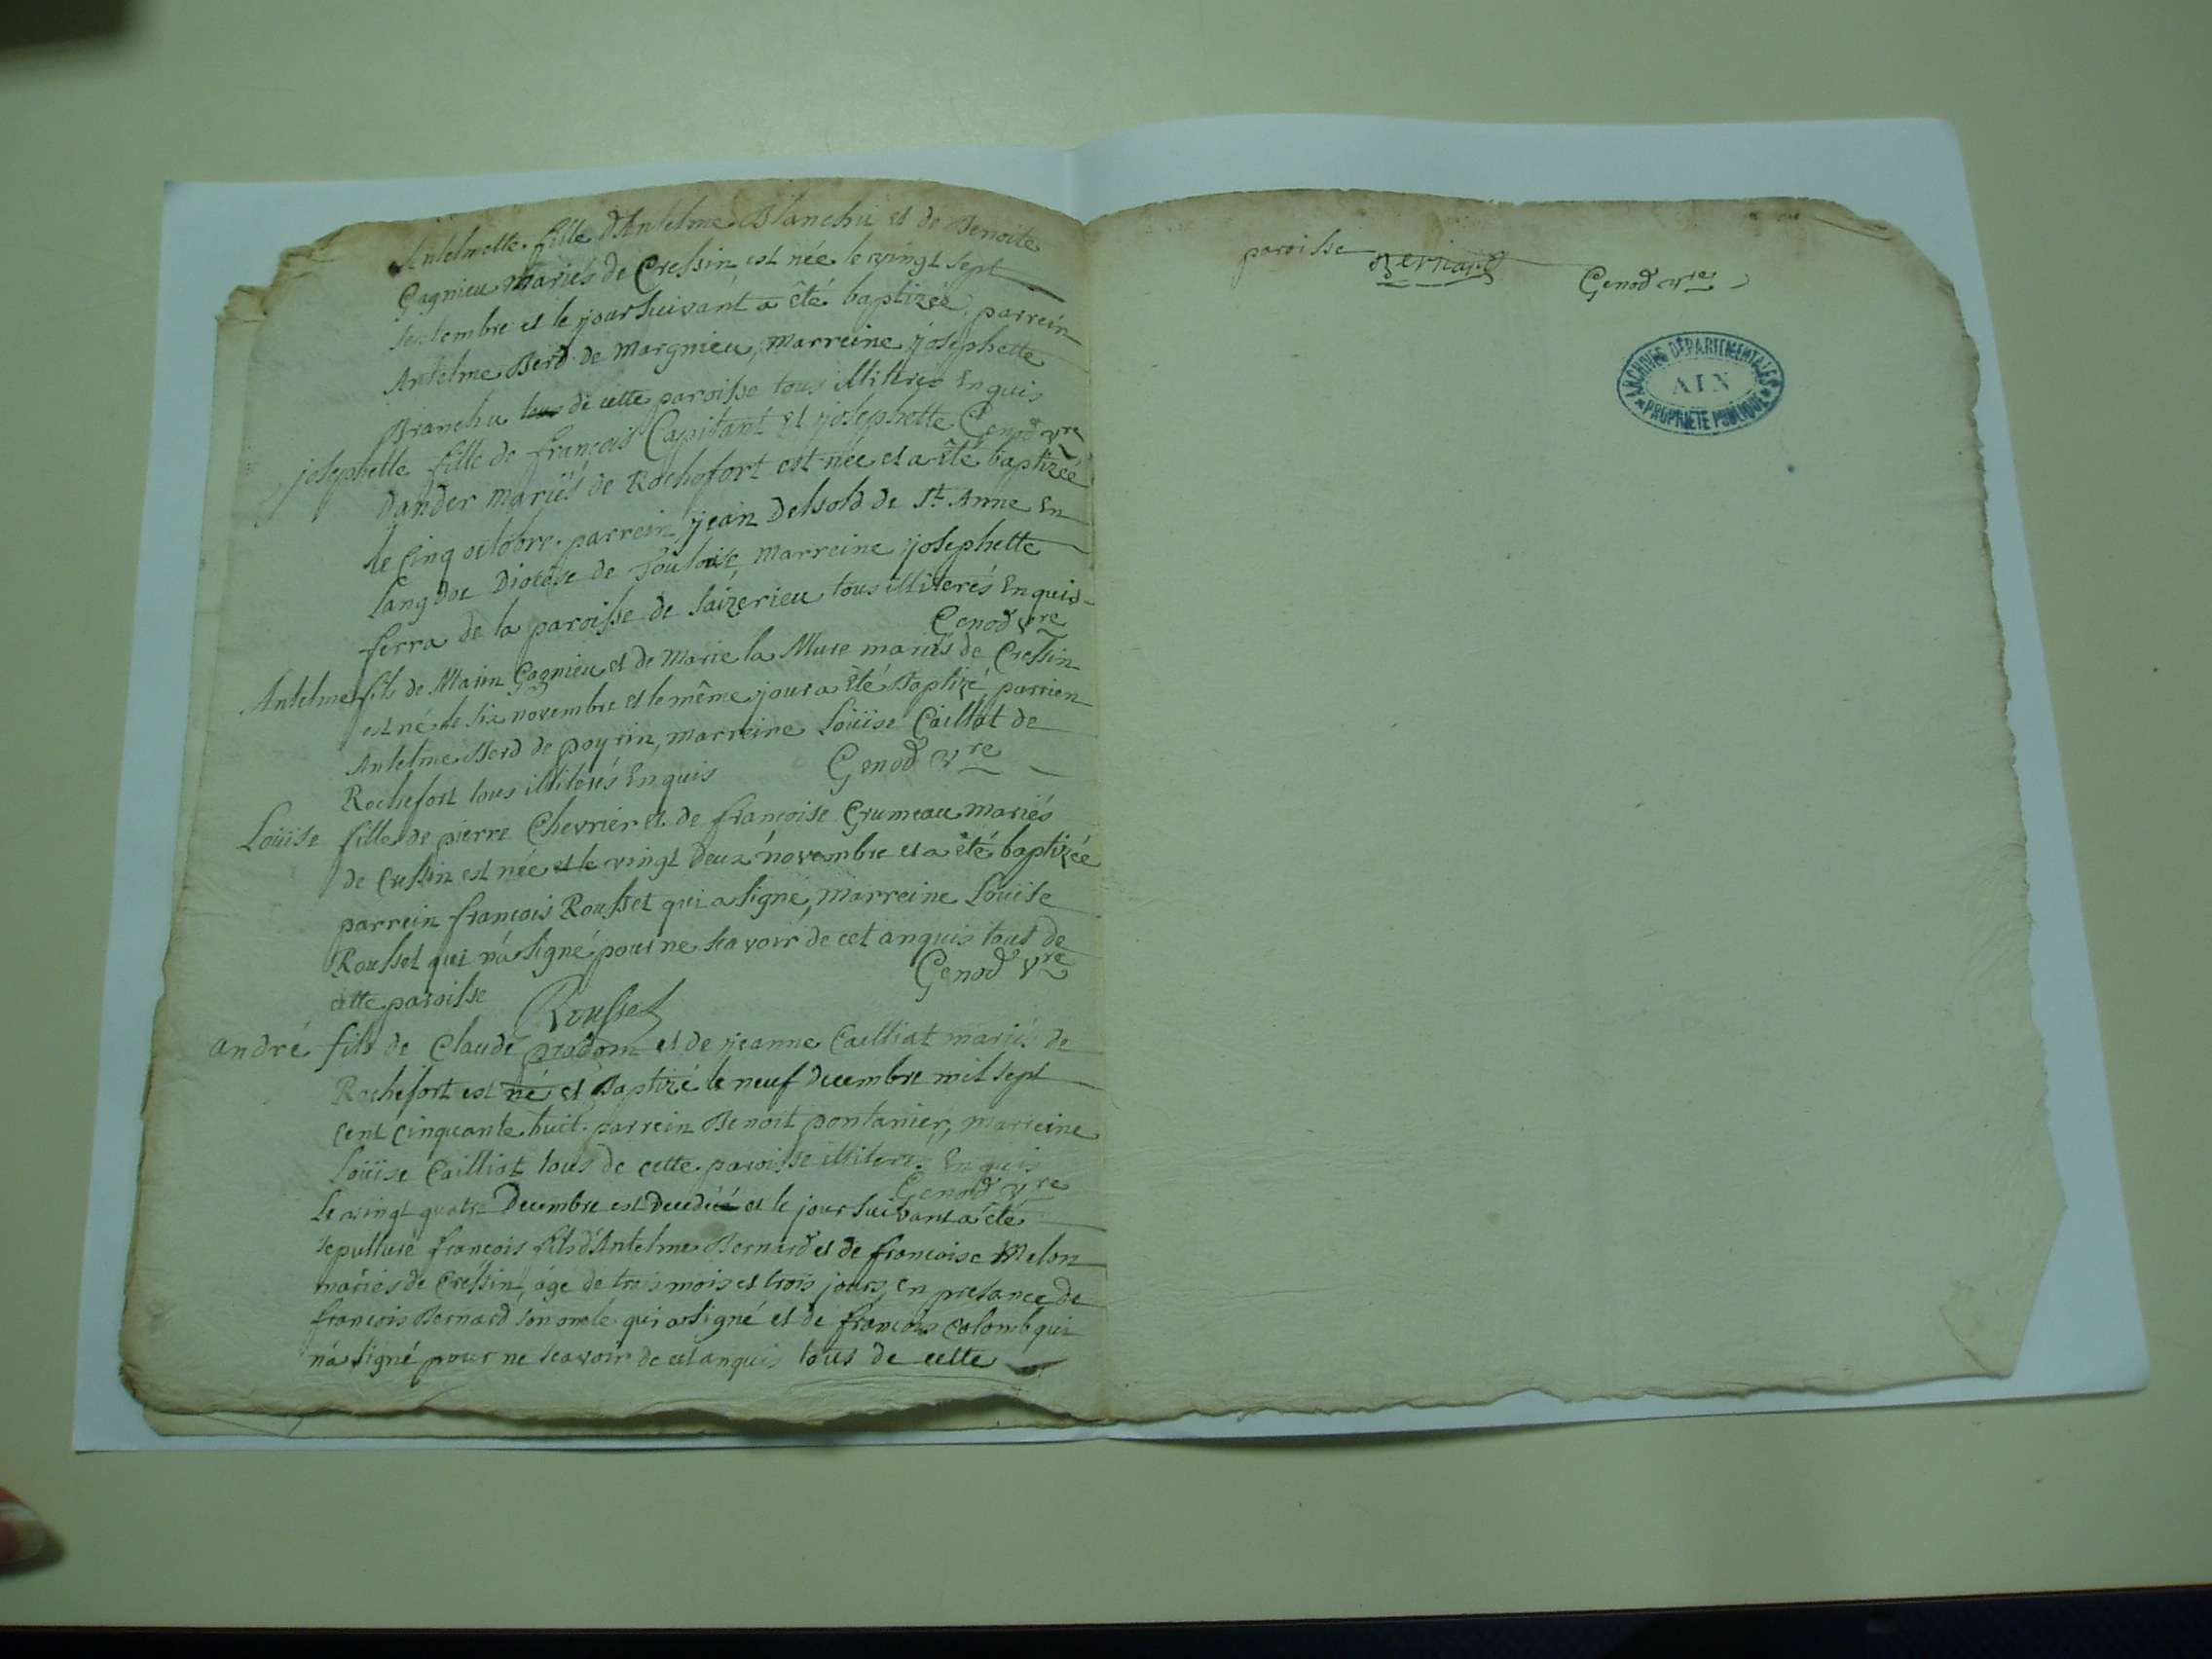 Antelmette fille d'Antelme Blanchu et de Benoite
Gagnieu mariés de Cressin est née le vingt sept
septembre et le jour suivant a êté baptizée, parrein
Antelme Berd de Margnieu, marreine josephette
Branchu tous de cette paroisse tous illiterés Enquis
Genod vre
josephette fille de françois Capitant et josephette
Dander mariés de Rochefort est née et a êté baptizée
le cinq octobre. parrein jean Delsold de St. Anne En
langdoc Diocése de Toulouse, marreine josephette
ferra de la paroisse de Saizerieu tous illiterés Enquis
Genod vre
Antelme fils de Gagnieu et de Marie la Muse mariés de Cressin
est né le six novembre et le même jour a êté Baptizé, parrien
Antelme Berd de poyrin, marreine Loüise Caillat de
Rochefort tous illiterés Enquis Genod vre
Loüise fille de pierre Chevrier et de françoise Grumeau mariés
de Cressin est née et le vingt deux novembre et a été baptizée
parrein françois Rousset qui a signé, marreine Louise
Rousset qui n'a signé pour ne scavoir de cet anquis tous de
cette paroisse Rousset Genod vre
andré fils de Claude prodom et de jeanne Cailliat mariés de
Rochefort est né et Baptizé le neuf decembre mil sept
cent cinquante huit. parrein Benoit pontanier, marreine
Loüise Cailliat tous de cette paroisse illiteré. Enquis
Genod vre
Le vingt quatre Decembre est decedéé et le jour suivant a été
sepulturé françois fils d'Antelme Bernard et de françoise Melon
mariés de Cressin, âgé de trois mois et trois jours, en presance de
françois Bernard son oncle qui a signé et de françois Colomb qui
n'a signé pour ne scavoir de cet anquis tous de cette
paroisse Bernard Genod vre
ARCHIVES DÉPARTEMENTALES
AIN
PROPRIÉTÉ PUBLIQUE